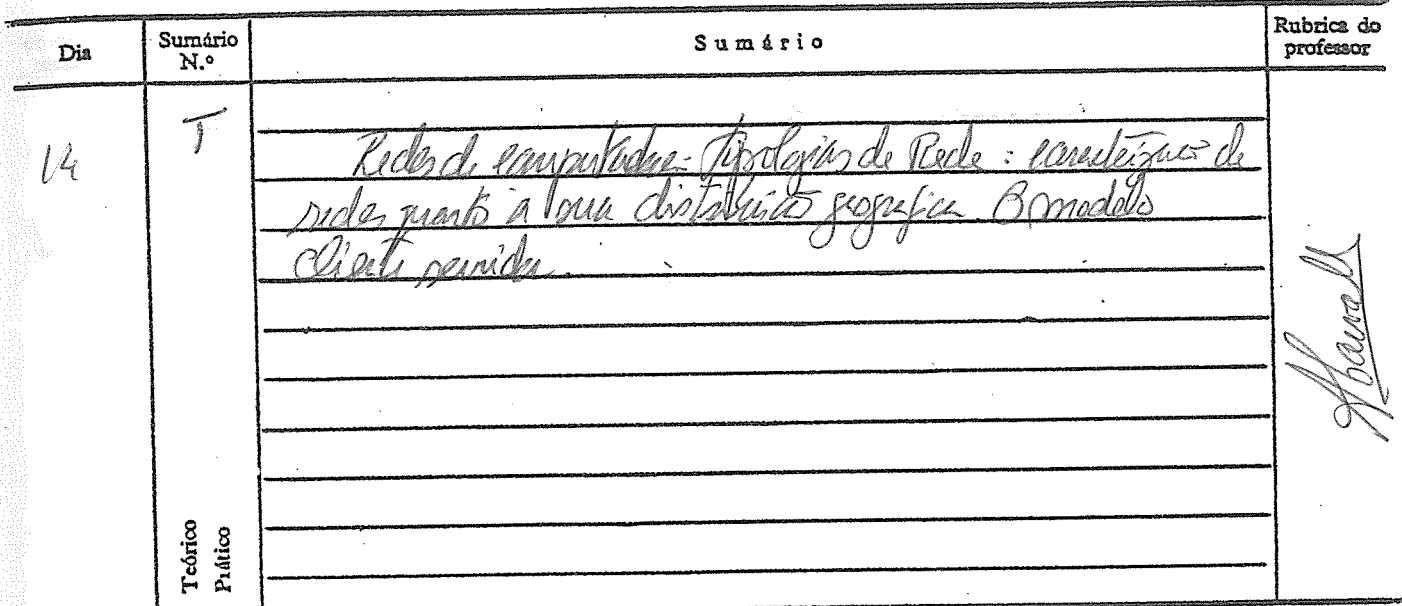 Dia
Sumário N.º
Sumário
Rubrica do professor
14
T
Redes de computadores - Tipologias de Rede : caracterização de
redes quanto à sua distribuição geografica. O modelo
cliente servidor.
Teórico
Prático